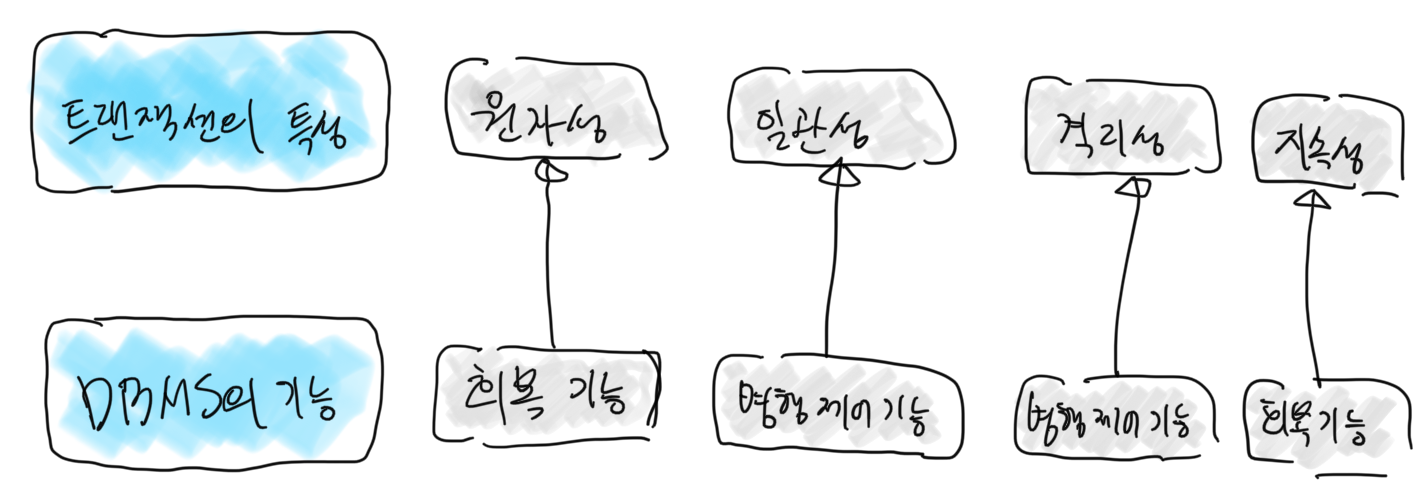 트랜잭션의 특성
원자성
일관성
격리성
지속성
DBMS의 기능
회복 기능
병행 제어 기능
병행 제어 기능
회복 기능